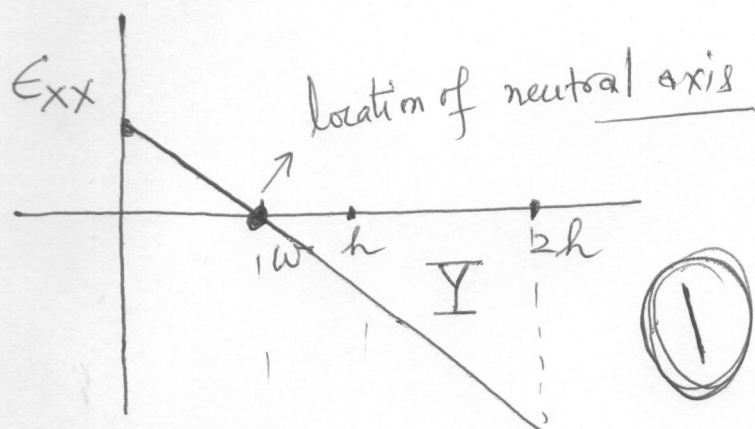 ϵxx
location of neutral axis
w h 2h
Y
1